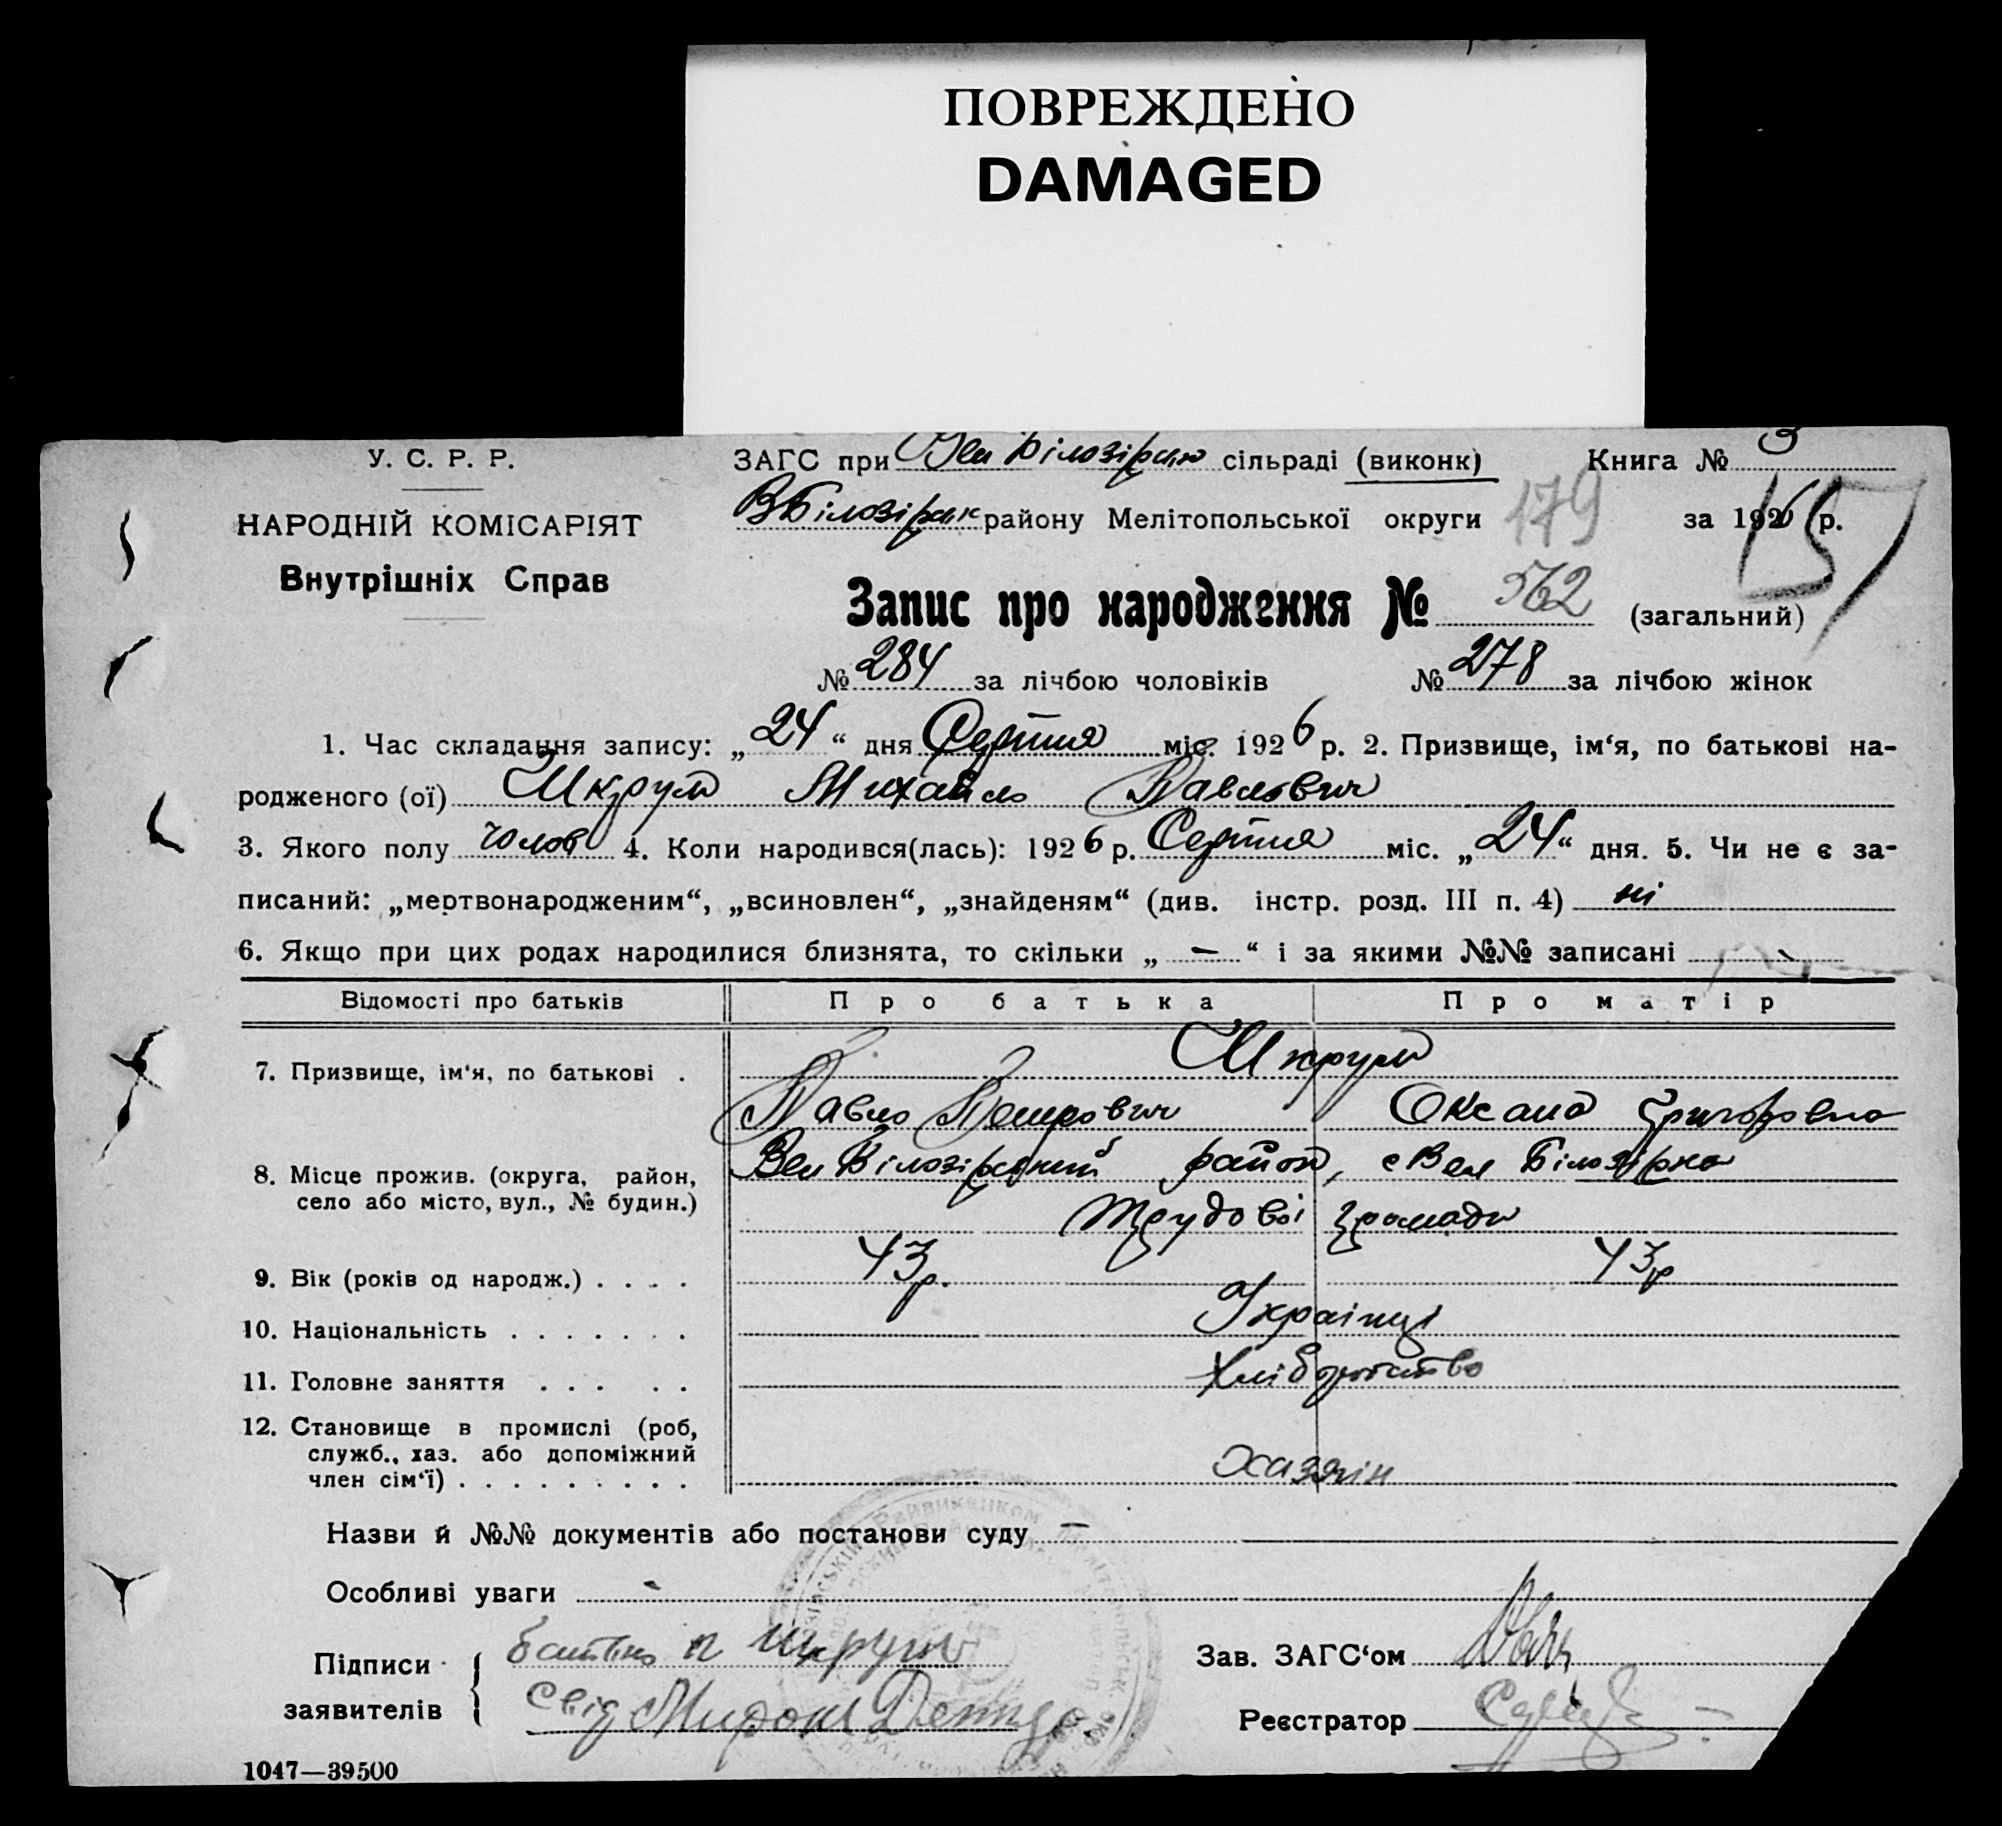 ПОВРЕЖДЕНО
DAMAGED
У. С. Р. Р.
НАРОДНІЙ КОМІСАРІЯТ
Внутрішніх Справ
ЗАГС при Вел Білозірцю сільраді (виконк) Книга № 3
ВБілозірцк району Мелітопольської округи 179 за 1926 р.
157
Запис про народження № 562 (загальний)
№ 284 за лічбою чоловіків № 278 за лічбою жінок
1. Час складання запису: „24“ дня Серпня міс. 1926 р. 2. Призвище, ім‘я, по батькові на-
родженого (ої) Шкрум Михайло Павлович
3. Якого полу чолов 4. Коли народився(лась): 1926 р. Серпня міс. „24“ дня. 5. Чи не є за-
писаний: „мертвонародженим“, „всиновлен“, „знайденям“ (див. інстр. розд. III п. 4) ні
6. Якщо при цих родах народилися близнята, то скільки „ — “ і за якими №№ записані
Відомості про батьків Про батька Про матір
7. Призвище, ім‘я, по батькові . Шкрум
Павло Петрович Оксана Григоровна
8. Місце прожив. (округа, район, село або місто, вул., № будин.) Вел Білозірський район, с Вел Білозірка
Трудової громади
9. Вік (років од народж.) . . . . 43р. 43р
10. Національність . . . . . . . Українці
11. Головне заняття . . . . . Хліборобство
12. Становище в промислі (роб,
служб., хаз. або допоміжний
член сім‘ї) . . . . . . . . . хазяін
Назви й №№ документів або постанови суду —
Особливі уваги -
Підписи заявителів { батько п шкрум
свід Мирон Демид
Зав. ЗАГС‘ом
Реєстратор
1047—39500